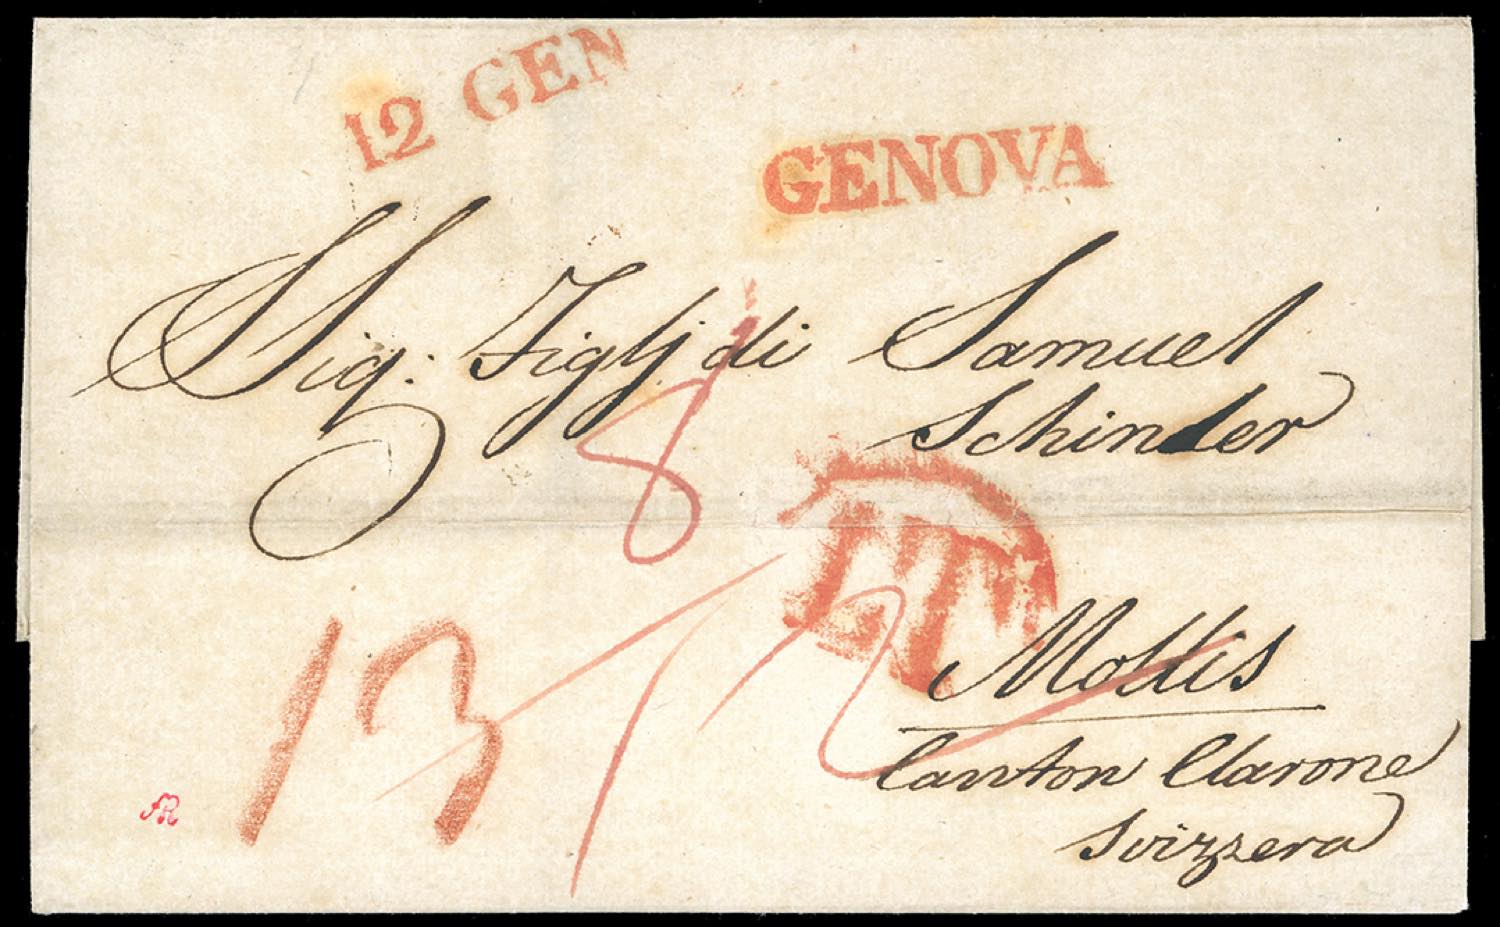 12 GEN
GENOVA
SSig: Figlj di Samuel
Schinder
8
LT
13
12
Mollis
Canton Clarone
Svizzera